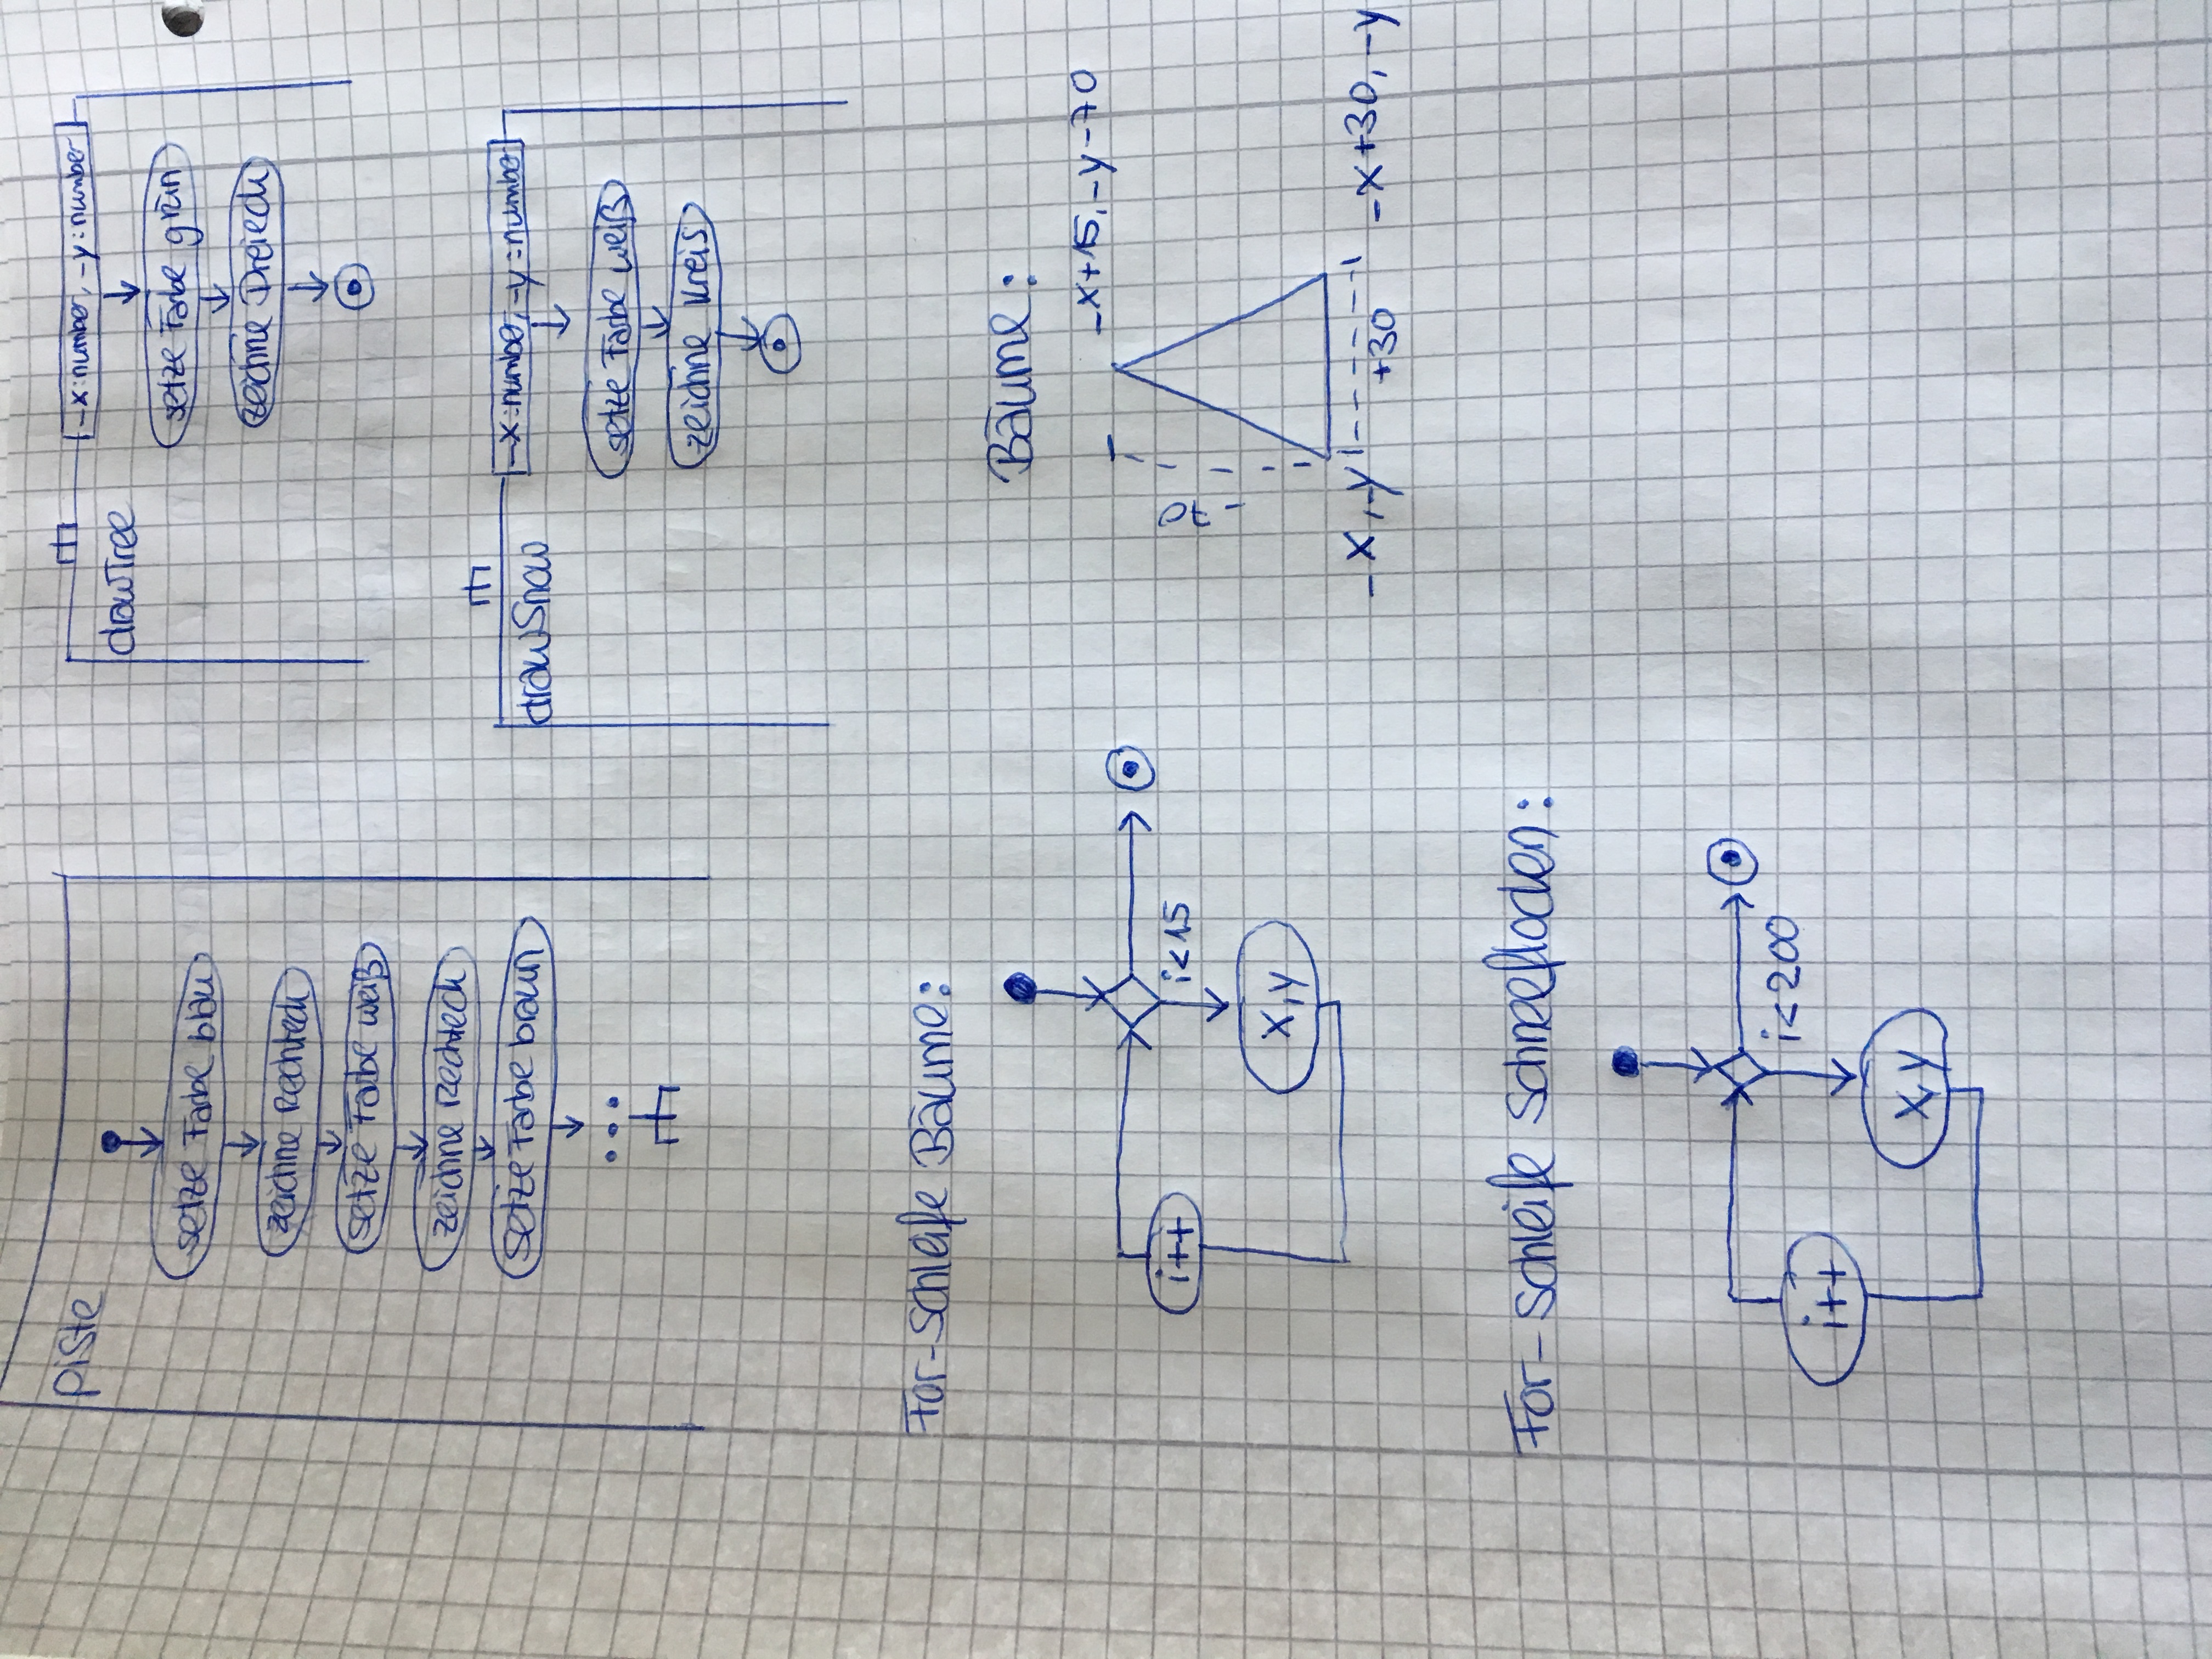 Piste
setze Farbe blau
zeichne Rechteck
setze Farbe weiß
zeichne Rechteck
setze Farbe braun
...
-x:number, -y:number
drawTree
setze Farbe grün
zeichne Dreieck
-x:number, -y:number
drawSnow
setze Farbe weiß
zeichne Kreis
For-Schleife Bäume:
i++
i<15
x,y
Bäume:
-x+15, -y-70
-70
-x,-y
+30
-x+30, -y
For-Schleife Schneeflocken:
i++
i<200
x,y